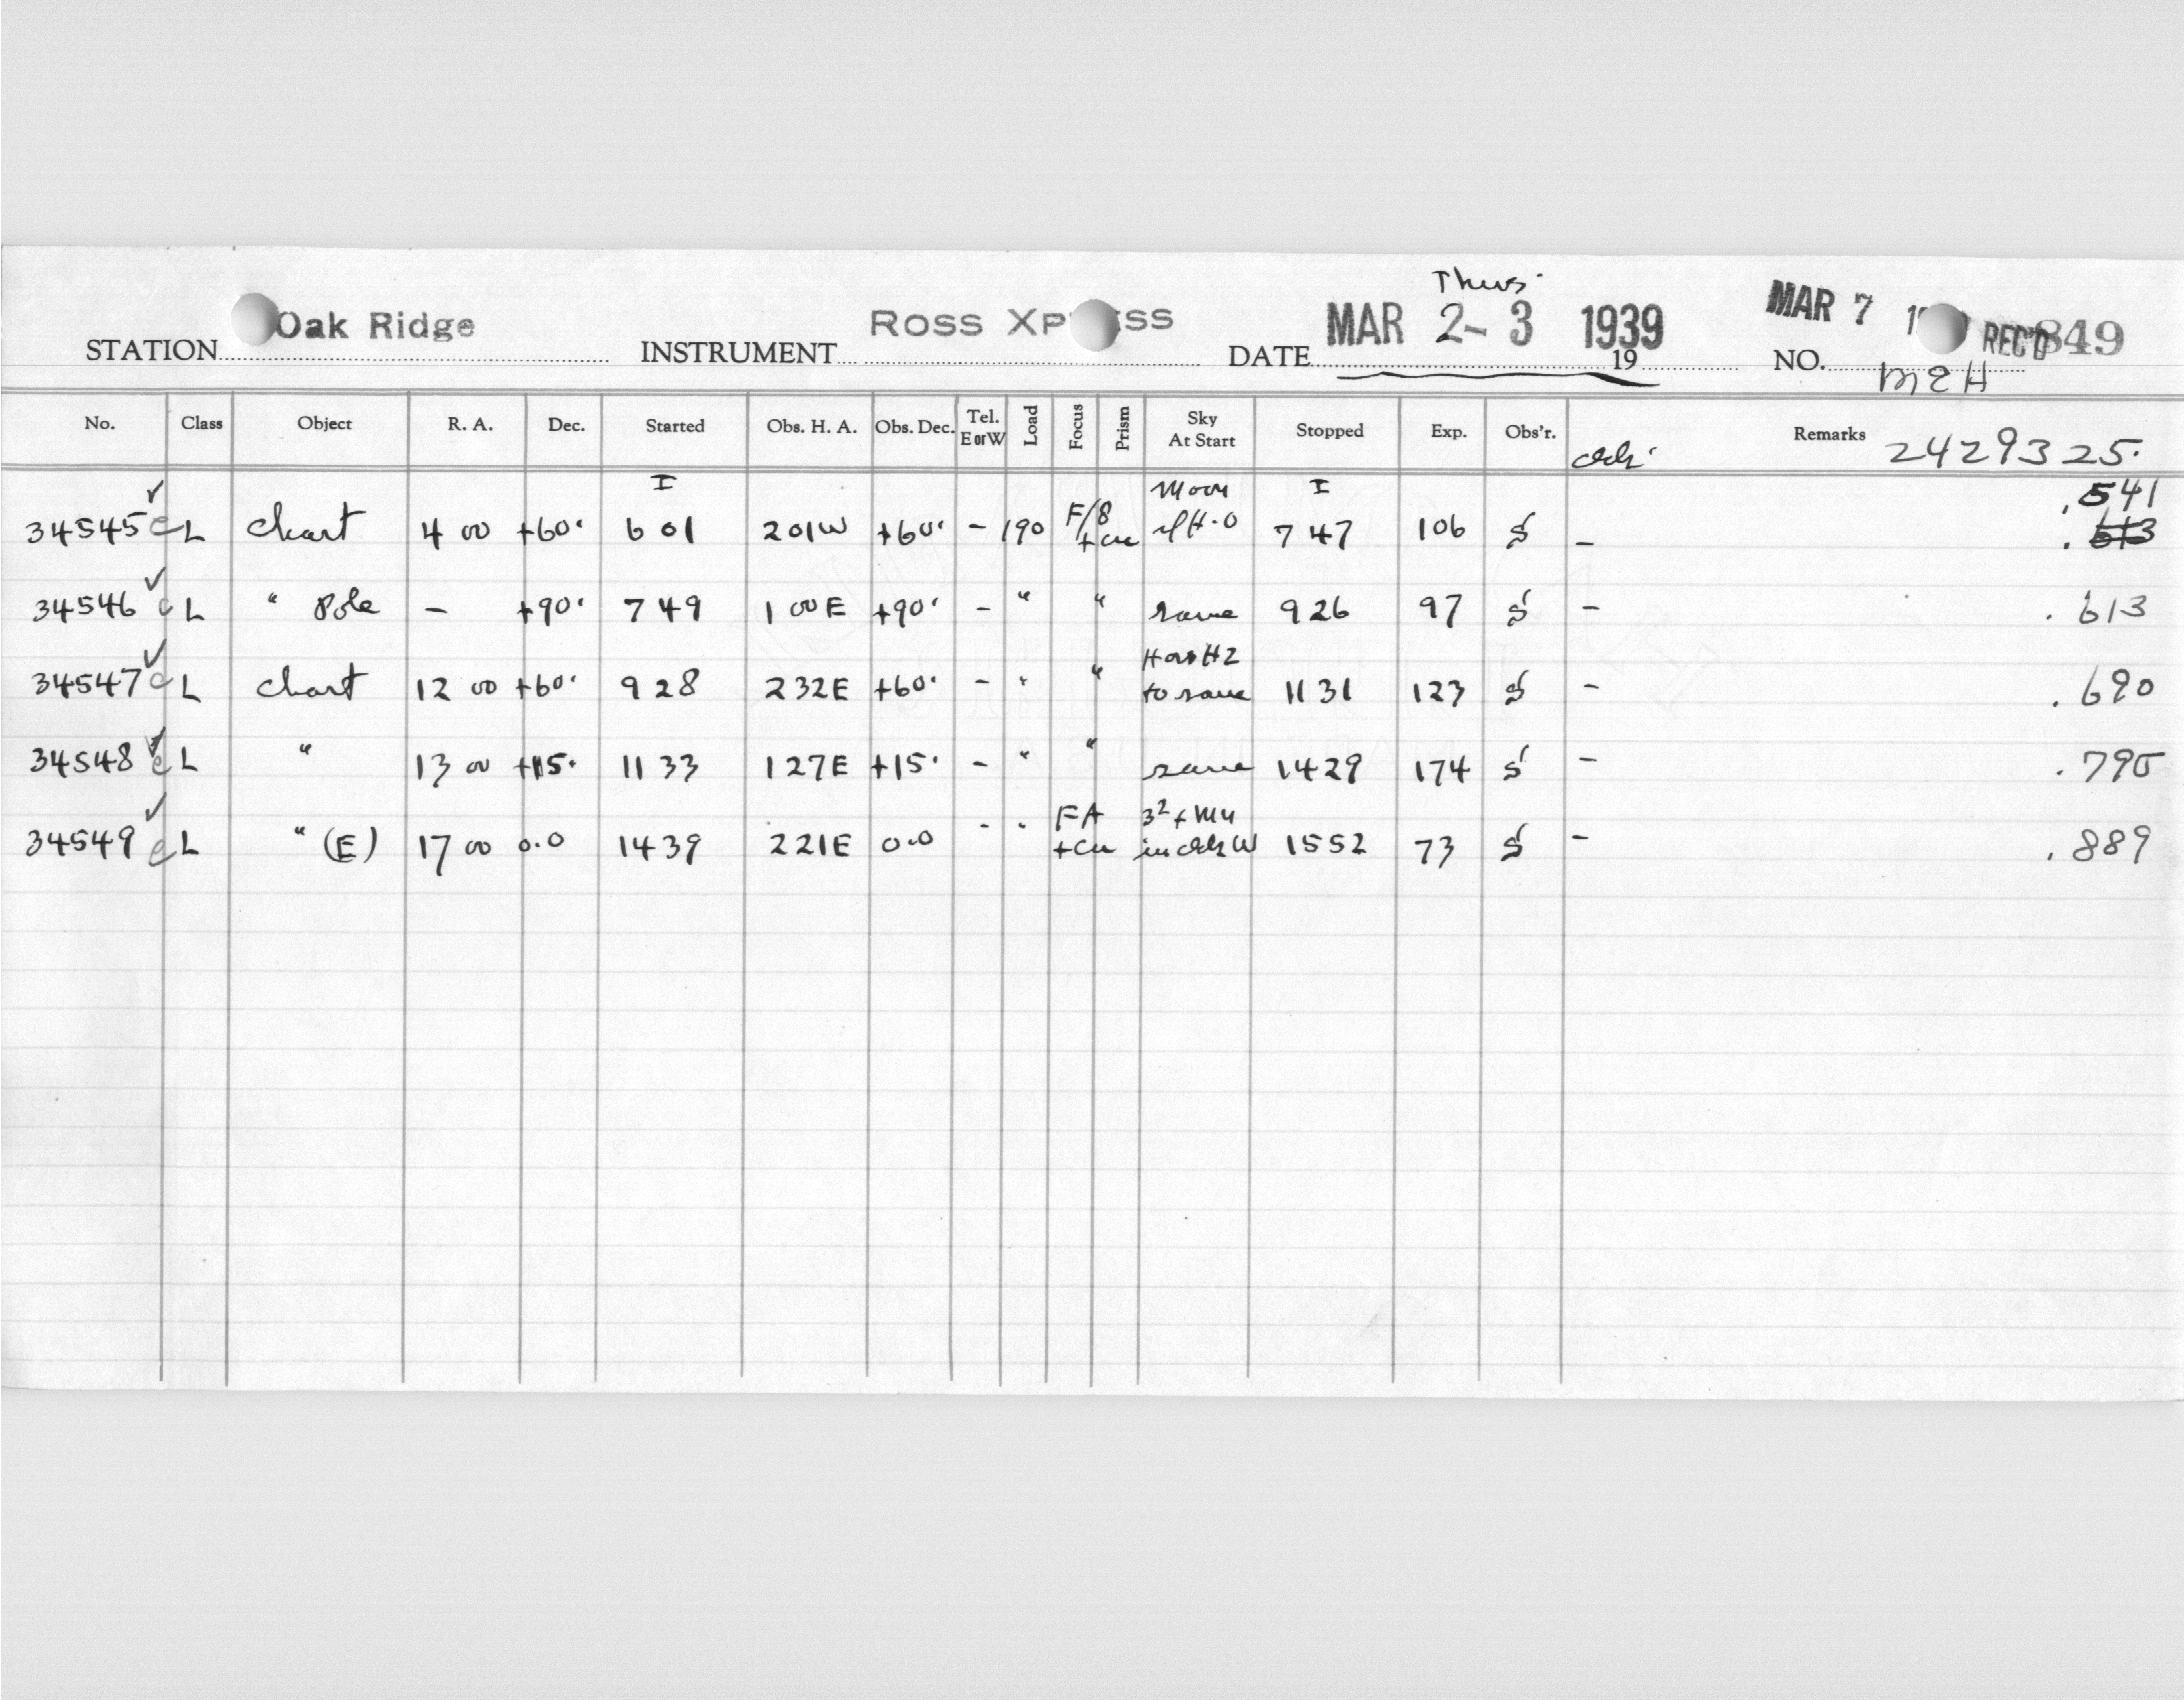 Thurs.
STATION Oak Ridge INSTRUMENT ROSS XP SS DATE MAR 2-3 1939 19 MAR 7 1 REC'D NO. 849
MEH
No. Class Object R. A. Dec. Started Obs. H. A. Obs. Dec. Tel. E or W Load Focus Prism Sky At Start Stopped Exp. Obs'r. Remarks 2429325.
I Moon I .541
34545 e L chart 4 00 +60° 6 01 201W +60° - 190 F/8 + cu H-0 7 47 106 S - .613
34546 c L " Pole - +90° 7 49 1 00E +90° - " " same 9 26 97 S - .613
34547 c L chart 12 00 +60° 9 28 232E +60° - " " H2 to same 11 31 123 S - .690
34548 e L " 13 00 +15° 11 33 127E +15° - " " same 14 29 174 S - .795
34549 e L " (E) 17 00 0.0 14 39 221E 0.0 - " FA +cu 3² + in W 15 52 73 S - .889